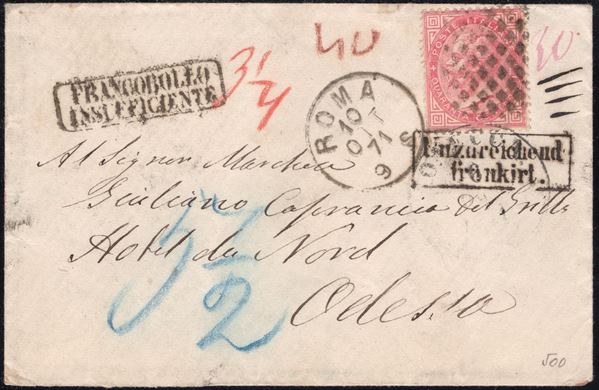 40
POSTE ITALIANE
40
FRANCOBOLLO
INSUFFICIENTE
3/4
ROMA
10
OTT
71
9 S
Unzureichend
frankirt.
Al Signor Marchese
Giuliano Capranica Del Grillo
Hotel du Nord
Odessa
57
2
500